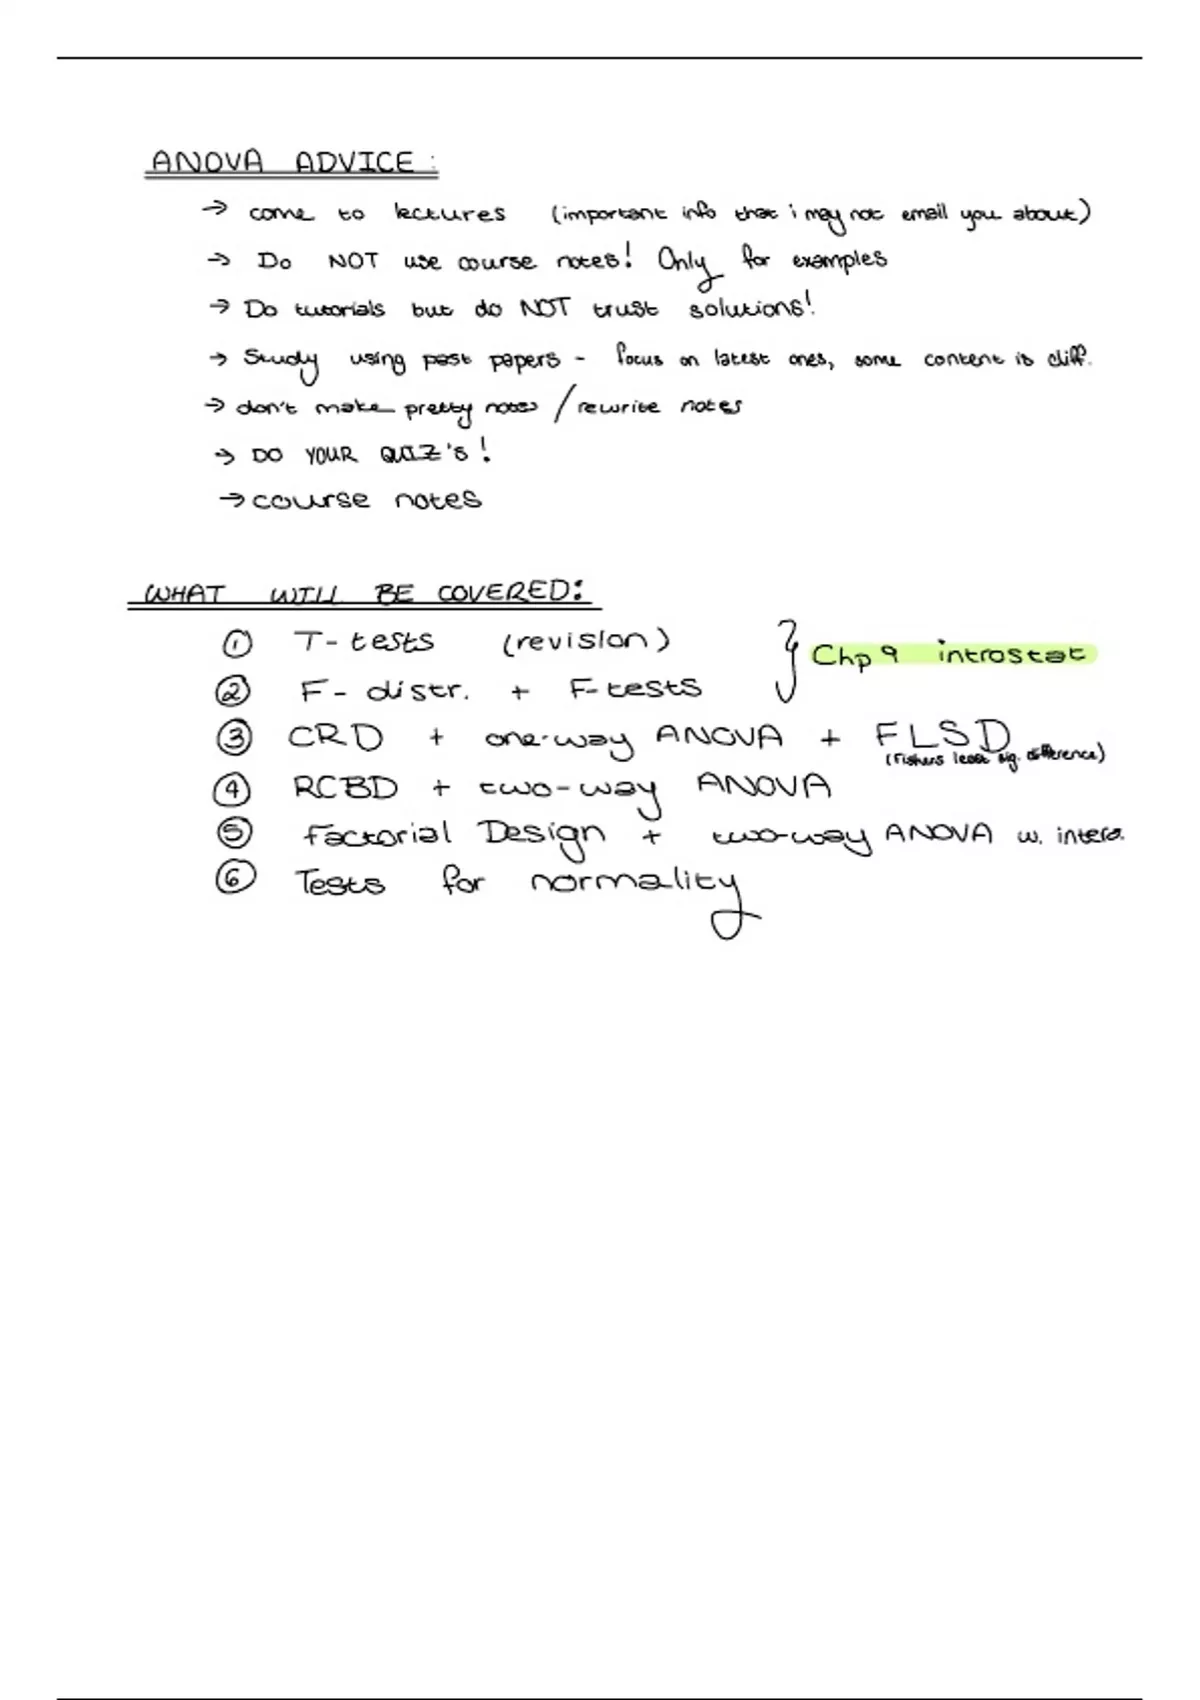 ANOVA ADVICE:
→ come to lectures (important info that i may not email you about)
→ Do NOT use course notes! Only for examples
→ Do tutorials but do NOT trust solutions!
→ Study using past papers - focus on latest ones, some content is diff.
→ don't make pretty notes / rewrite notes
→ DO YOUR QUIZ's!
→ course notes
WHAT WILL BE COVERED:
① T-tests (revision)
② F-distr. + F-tests
} Chp 9 introstat
③ CRD + one-way ANOVA + FLSD
(Fishers least sig. difference)
④ RCBD + two-way ANOVA
⑤ Factorial Design + two-way ANOVA w. intera.
⑥ Tests for normality